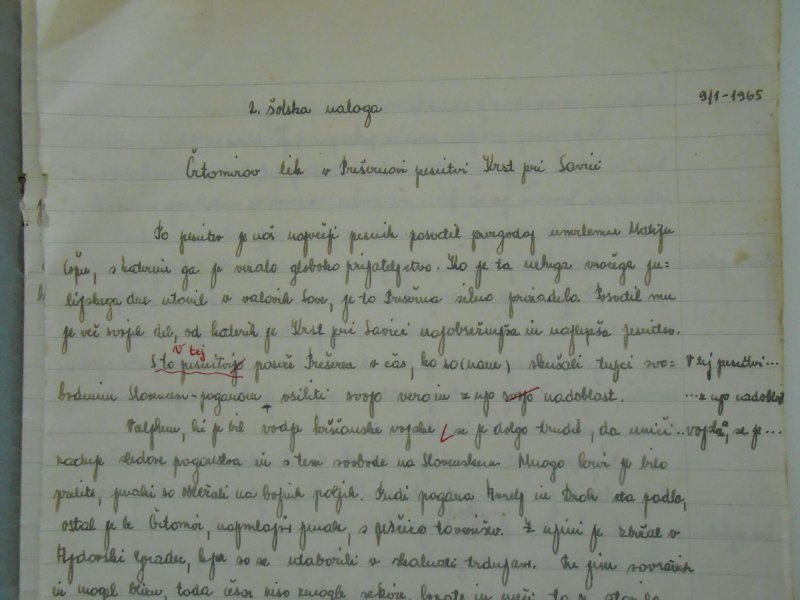 2. šolska naloga
9/1-1965
Črtomirov lik v Prešernovi pesnitvi Krst pri Savici
To pesnitev je naš največji pesnik posvetil prezgodaj umrlemu Matiju
Čopu, s katerim ga je vezalo globoko prijateljstvo. Ko je ta nekega vročega ju=
lijskega dne utonil v valovih Save, je to Prešerna silno prizadelo. Posvetil mu
je več svojih del, od katerih je Krst pri Savici najobsežnejša in najlepša pesnitev.
v tej
S to pesnitvijo poseže Prešeren v čas, ko so (nam) skušali tujci svo= V tej pesnitvi...
bodnim Slovencem-poganom, vsiliti svojo vero in z njo svojo nadoblast. ...z njo nadoblast
Valjhun, ki je bil vodja krščanske vojske se je dolgo trudil, da uniči ..vojske, se je...
zadnje sledove poganstva in s tem svobode na Slovenskem. Mnogo krvi je bilo
prelite, junaki so obležali na bojnih poljih. Tudi pogana Avrelj in Droh sta padla,
ostal je le Črtomir, najmlajši junak, s peščico tovarišev. Z njimi je zbežal v
Ajdovski gradec, kjer so se utaborili v skalnati trdnjavi. Tu jim sovražnik
ni mogel blizu, toda česar niso zmogle sekire, lopate in meči, to je storila